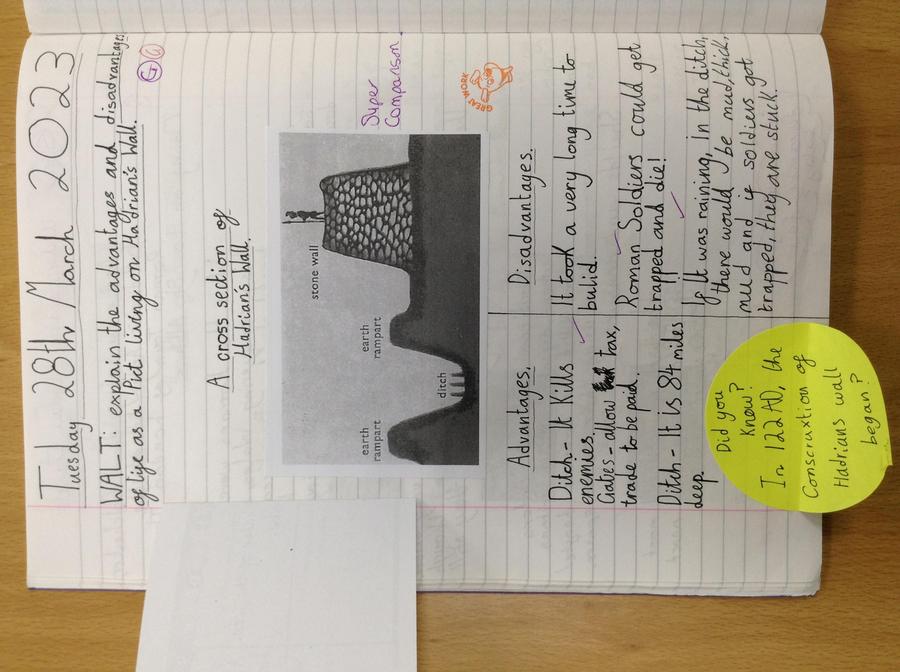 Tuesday 28th March 2023
WALT: explain the advantages and disadvantages
of life as a Pict living on Hadrian's Wall.
G G
A cross section of
Hadrian's Wall.
Super
Comparison.
stone wall
earth
rampart
ditch
earth
rampart
GREAT WORK
Advantages.
Ditch - It Kills
enemies.
Gaties - allow tax,
trade to be paid.
Ditch - It is 84 miles
deep.
Disadvantages.
It took a very long time to
bulid.
Roman Soldiers could get
trapped and die!
If It was raining, in the ditch,
there would be mud, thick,
mud and if soldiers got
trapped, they are stuck.
Did you
Know?
In 122 AD, the
Conscruxtion of
Hadrians wall
began?